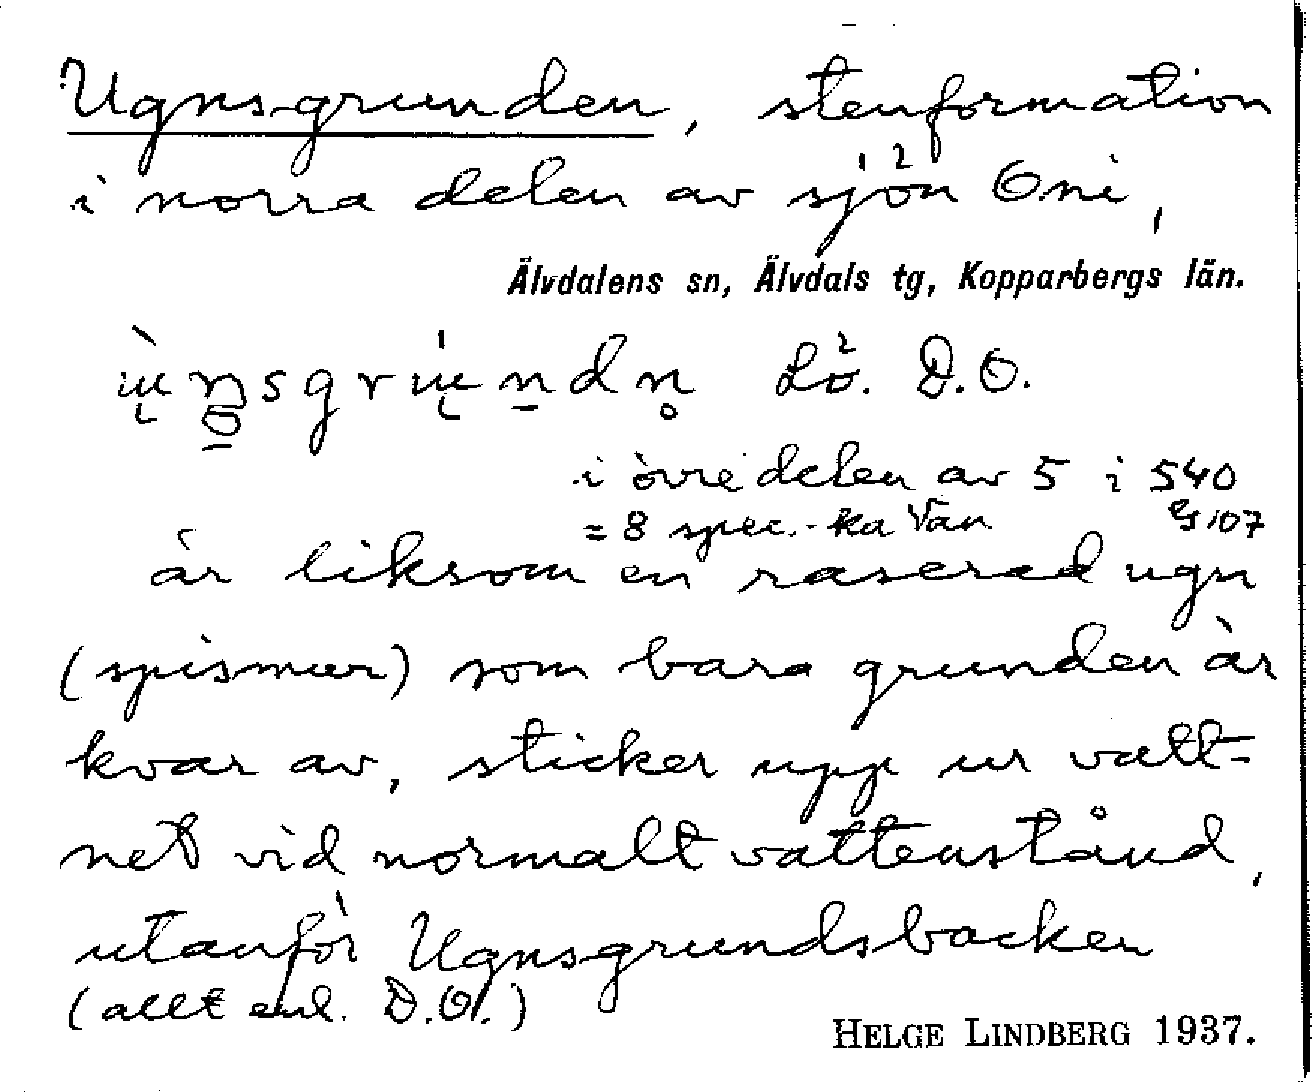 Ugnsgrunden, stenformation
i norra delen av sjön Oni,
Älvdalens sn, Älvdals tg, Kopparbergs län.
Lö. D.O.
i övre delen av 5 i 540
= 8 spec.-ka Van G 107
är liksom en raserad ugn
(spismur) som bara grunden är
kvar av, sticker upp ur vatt-
net vid normalt vattenstånd,
utanför Ugnsgrundsbacken
(allt enl. D.O.)
HELGE LINDBERG 1937.